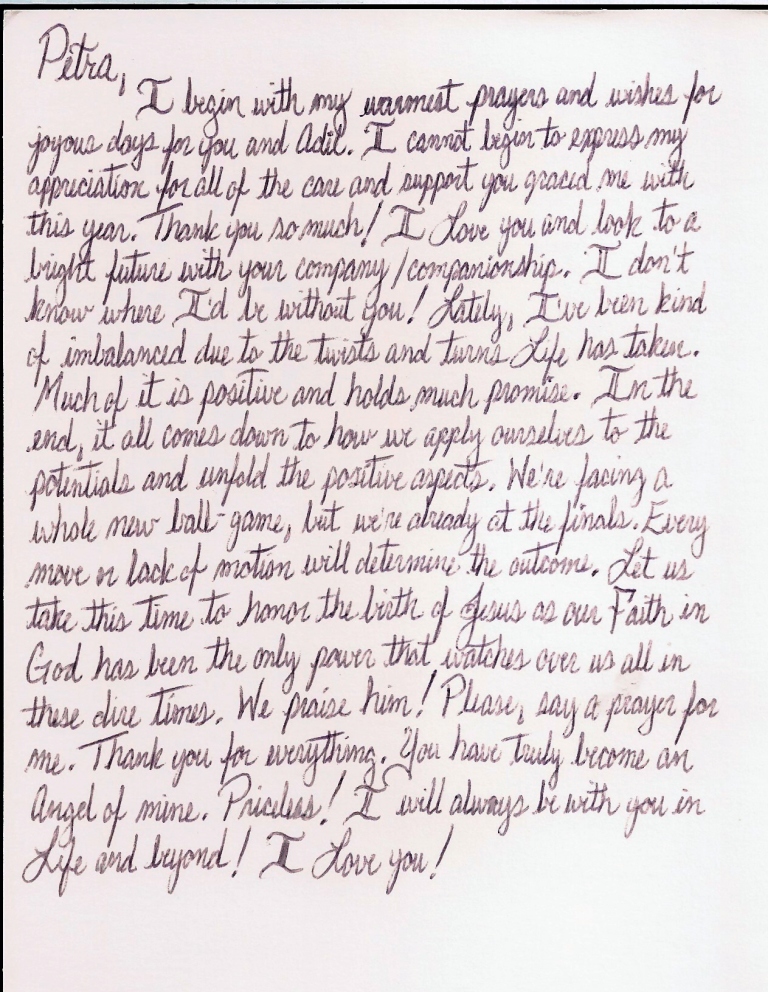 Petra,
I begin with my warmest prayers and wishes for
joyous days for you and Adil. I cannot begin to express my
appreciation for all of the care and support you graced me with
this year. Thank you so much! I Love you and look to a
bright future with your company/companionship. I don't
know where I'd be without you! Lately, I've been kind
of imbalanced due to the twists and turns Life has taken.
Much of it is positive and holds much promise. In the
end, it all comes down to how we apply ourselves to the
potentials and unfold the positive aspects. We're facing a
whole new ball-game, but we're already at the finals. Every
move or lack of motion will determine the outcome. Let us
take this time to honor the birth of Jesus as our Faith in
God has been the only power that watches over us all in
these dire times. We praise him! Please, say a prayer for
me. Thank you for everything. You have truly become an
Angel of mine. Priceless! I will always be with you in
Life and beyond! I Love you!